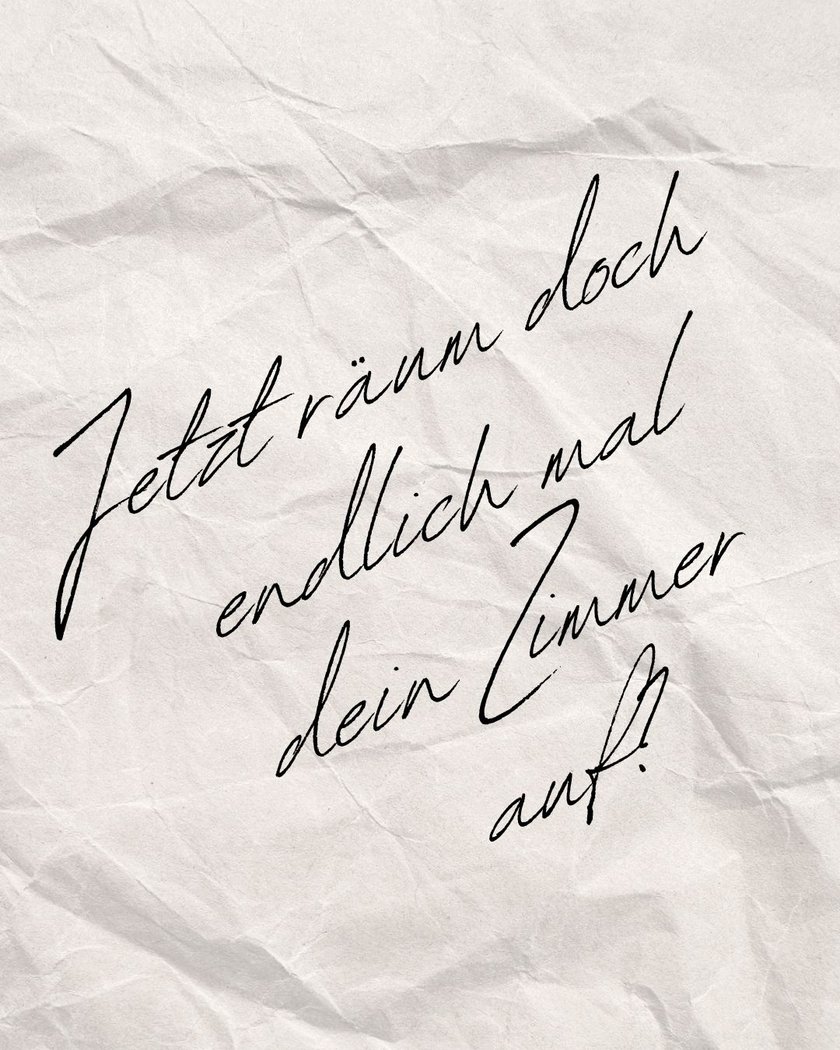 Jetzt räum doch
endlich mal
dein Zimmer
auf!